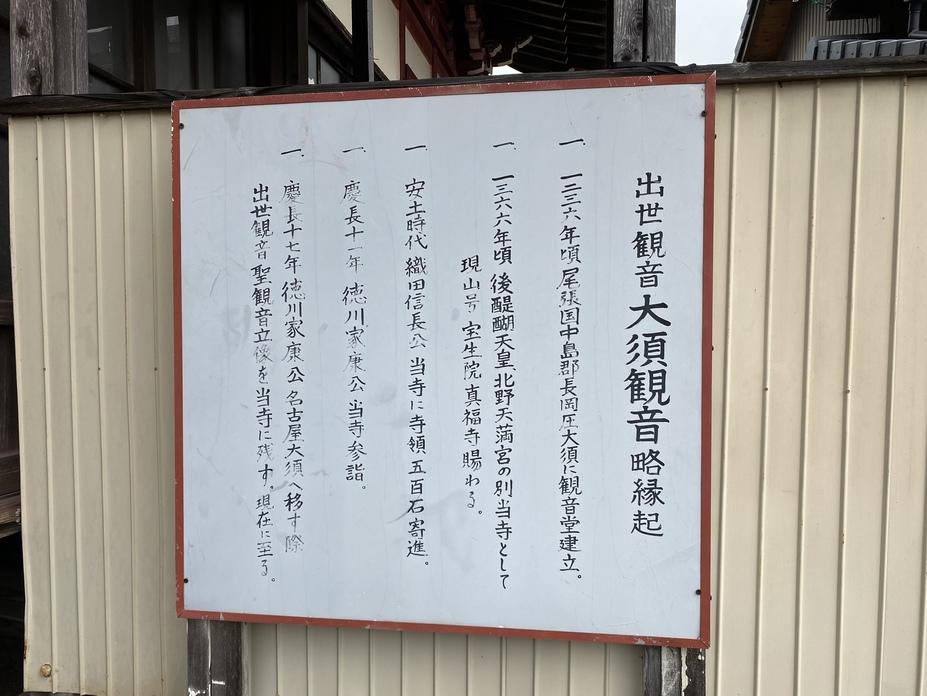 出世観音 大須観音 略縁起
一、一二三六年頃 尾張国中島郡長岡庄大須に観音堂建立。
一、一三六六年頃 後醍醐天皇、北野天満宮の別当寺として
現山号 宝生院真福寺賜わる。
一、安土時代 織田信長公 当寺に寺領五百石寄進。
一、慶長十一年 徳川家康公 当寺参詣。
一、慶長十七年 徳川家康公 名古屋大須へ移す際
出世観音 聖観音立像を当寺に残す。現在に至る。